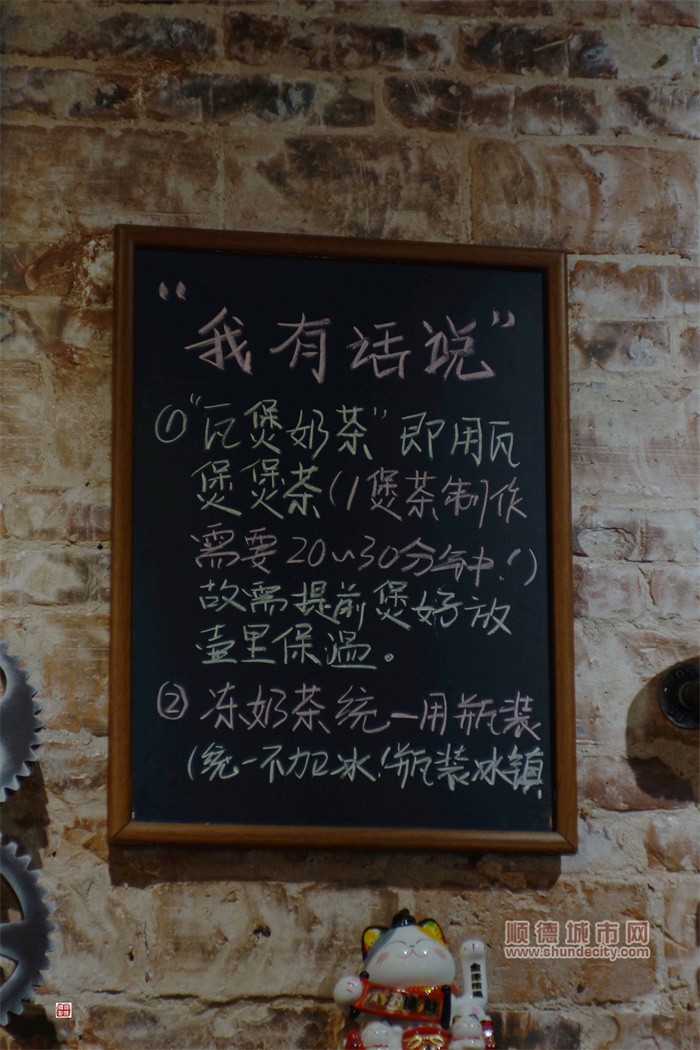 “我有话说”
①“瓦煲奶茶”即用瓦
煲煲茶(1煲茶制作
需要20~30分钟!)
故需提前煲好放
壶里保温。
②冻奶茶统一用瓶装
(统一不加冰!瓶装冰镇
顺德城市网
www.shundecity.com